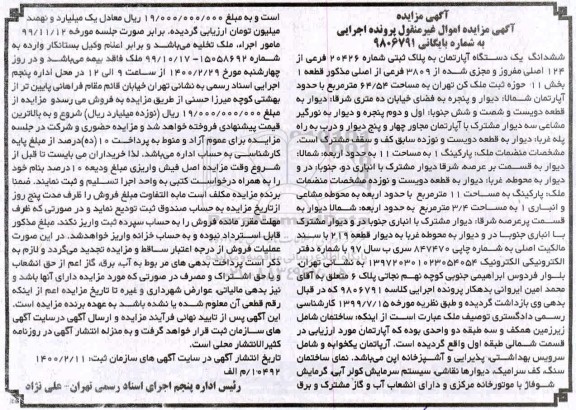 آگهی مزایده
آگهی مزایده اموال غیرمنقول پرونده اجرایی
به شماره بایگانی ۹۸۰۶۷۹۱
ششدانگ یک دستگاه آپارتمان به پلاک ثبتی شماره ۲۰۴۲۶ فرعی از
۱۲۴ اصلی مفروز و مجزی شده از ۳۸۰۹ فرعی از اصلی مذکور قطعه ۱
بخش ۱۱ حوزه ثبت ملک کن تهران به مساحت ۶۴/۵۴ مترمربع با حدود
آپارتمان شمالا: دیوار و پنجره به فضای خیابان ده متری شرقا: دیوار به
قطعه دویست و شصت و شش جنوبا: اول و دوم پنجره و دیوار به نورگیر
مشاعی سه دیوار مشترک با آپارتمان مجاور چهار و پنج دیوار و درب به راه
پله غربا: دیوار به قطعه دویست و نوزده سابق کف و سقف مشترک است.
مشخصات منضمات ملک: پارکینگ ۱ به مساحت ۱۱ به حدود اربعه: شمالا:
دیوار به قسمت بر عرصه شرقا دیوار مشترک با انباری دو، جنوبا: در و
دیوار به محوطه، غربا: دیوار به قطعه دویست و نوزده مشخصات منضمات
ملک: پارکینگ به مساحت ۱۱ مترمربع با حدود اربعه به محوطه مشاعی
و انباری ۱ به مساحت ۳/۴ مترمربع به حدود اربعه: شمالا دیوار به
قسمت برعرصه شرقا: دیوار مشترک با انباری جنوبا در و دیوار مشترک
با انباری جنوبا در و دیوار به محوطه غربا به دیوار قطعه ۲۱۹ با سند
مالکیت اصلی به شماره چاپی ۸۴۷۴۷۰ سری ب سال ۹۷ با شماره دفتر
الکترونیکی الکترونیک ۱۳۹۷۲۰۳۰۱۰۲۳۰۵۴۰۵۴ به نشانی تهران
بلوار فردوس ابراهیمی جنوبی کوچه نهم نجاتی پلاک ۶ متعلق به آقای
محمد امین ایروانی بدهکار پرونده اجرایی کلاسه ۹۸۰۶۷۹۱ که در قبال
بدهی وی بازداشت گردیده و طبق نظریه مورخه ۱۳۹۹/۷/۱۵ کارشناسی
رسمی دادگستری توصیف ملک عبارت است از اینکه: ساختمان شامل
زیرزمین همکف و سه طبقه دو واحدی بوده که آپارتمان مورد ارزیابی در
قسمت شمالی طبقه اول واقع گردیده است. آپرتمان یکخوابه و شامل
سرویس بهداشتی، پذیرایی و آشپزخانه اپن می‌باشد. نمای ساختمان
سنگ، کف سرامیک، دیوارها نقاشی، سیستم سرمایش کولر آبی، گرمایش
شوفاژ با موتورخانه مرکزی و دارای انشعاب آب و گاز مشترک و برق
است و به مبلغ ۱۹/۰۰۰/۰۰۰/۰۰۰ ریال معادل یک میلیارد و نهصد
میلیون تومان ارزیابی گردیده. برابر صورت جلسه مورخه ۹۹/۱۱/۱۲
مامور اجراء، ملک تخلیه می‌باشد و برابر اعلام وکیل بستانکار وارده به
شماره ۱۵۰۵۸۶۹۲-۹۹/۱۰/۱۷ ملک فاقد بیمه می‌باشد و در روز
چهارشنبه مورخ ۱۴۰۰/۲/۲۹ از ساعت ۹ الی ۱۲ در محل اداره پنجم
اجرایی اسناد رسمی به نشانی تهران خیابان قائم مقام فراهانی پایین تر از
بهشتی کوچه میرزا حسنی از طریق مزایده به فروش می رسدو مزایده از
مبلغ ۱۹/۰۰۰/۰۰۰/۰۰۰ ریال (نوزده میلیارد ریال) شروع و به بالاترین
قیمت پیشنهادی فروخته خواهد شد و مزایده حضوری و شرکت در جلسه
مزایده برای عموم آزاد و منوط به پرداخت ۱۰ (ده)درصد از مبلغ پایه
کارشناسی به حساب اداره می‌باشد. لذا خریداران می بایست تا قبل از
شروع وقت مزایده اصل فیش واریزی مبلغ ودیعه ۱۰ درصد بنام خود
را به همراه درخواست کتبی به واحد اجرا تسلیم و ثبت نمایند. ضمنا
برنده مزایده مکلف است مابه التفاوت مبلغ فروش را ظرف مدت پنج روز
ازتاریخ مزایده به حساب صندوق ثبت تودیع نماید و در صورتی که ظرف
مهلت مقرر مانده فروش را به حساب سپرده ثبت واریز نکند، مبلغ مذکور
قابل استرداد نبوده و به حساب خزانه واریز خواهدشد. در این صورت
عملیات فروش از درجه اعتبار ساقط و مزایده تجدید می‌گردد و لازم به
ذکر است پرداخت بدهی های مر بوط به آب، برق، گاز اعم از حق انشعاب
و یا حق اشتراک و مصرف در صورتی که مورد مزایده دارای آنها باشد و
نیز بدهی مالیاتی، عوارض شهرداری و غیره تا تاریخ مزایده اعم از اینکه
رقم قطعی آن معلوم شده یا نشده باشد به عهده برنده مزایده است.
این آگهی پس از تایید نهائی فرآیند مزایده و ارسال آگهی درسایت آگهی
های سازمان ثبت قرار خواهد گرفت و به منزله انتشار آگهی در روزنامه
کثیرالانتشار محلی است.
تاریخ انتشار آگهی در سایت آگهی های سازمان ثبت: ۱۴۰۰/۲/۱۱
۱۰۴۹۲/م الف
رئیس اداره پنجم اجرای اسناد رسمی تهران- علی نژاد